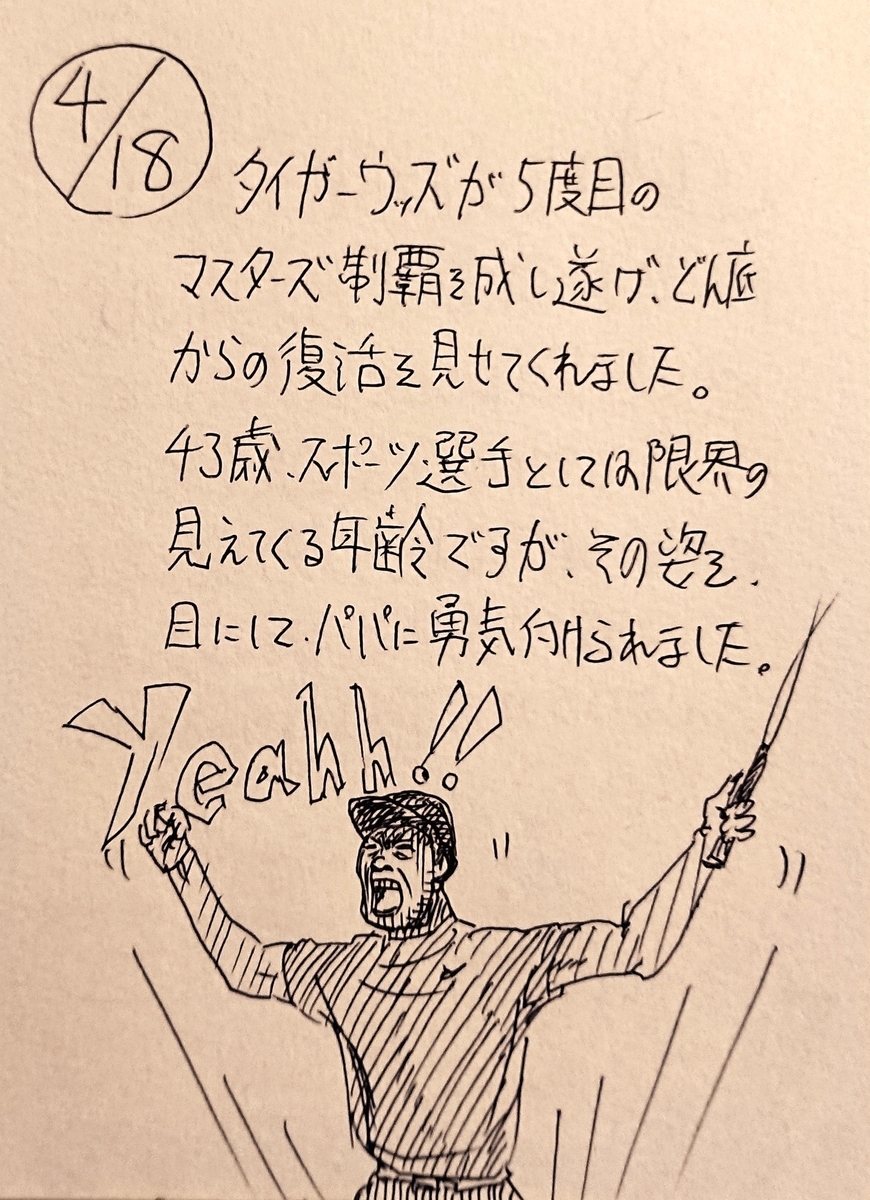 4/18
タイガーウッズが5度目の
マスターズ制覇を成し遂げ、どん底
からの復活を見せてくれました。
43歳、スポーツ選手としては限界の
見えてくる年齢ですが、その姿を、
目にして、パパに勇気付けられました。
Yeahh!!